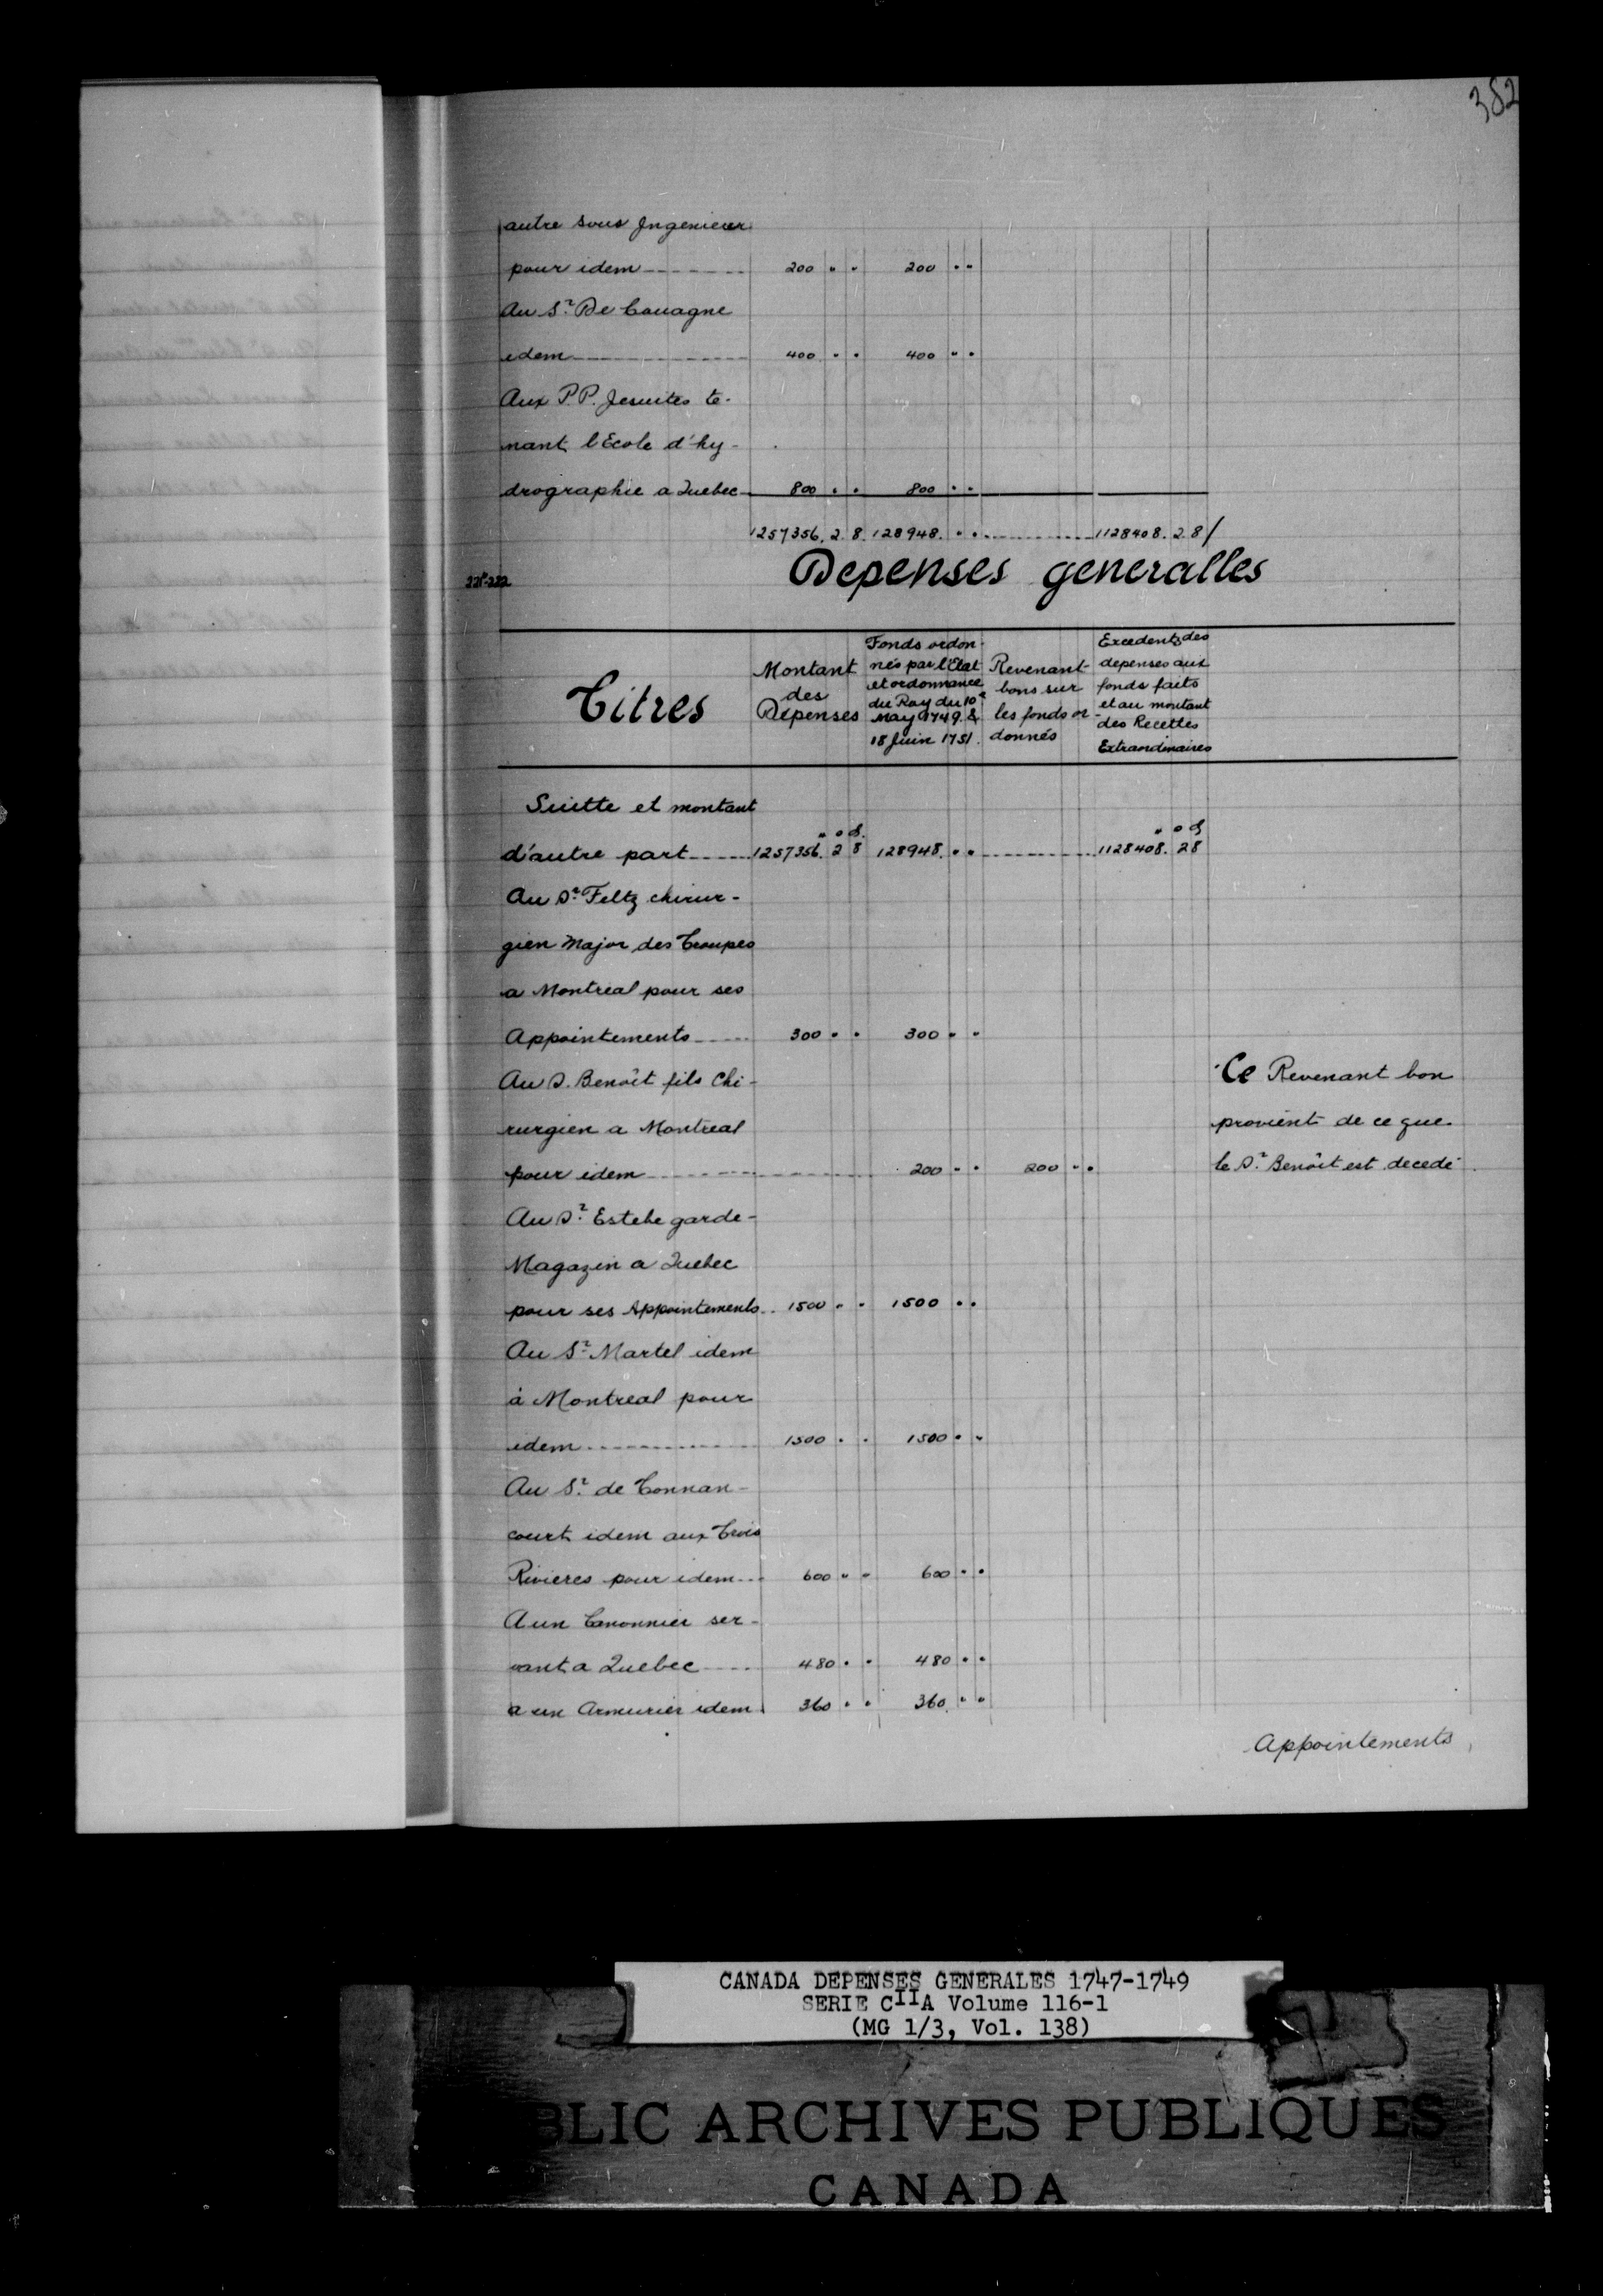 382
autre sous Jngenieur
pour idem 200 " " 200 " "
Au Sr. De Couagne
idem 400 " " 400 " "
Aux P.P. Jesuites te-
nant l'Ecole d'hy-
drographie a Quebec 800 " " 800 " "
1257356. 2. 8. 128948. " " 1128408. 2. 8/
Depenses generalles
Titres
Montant des Dépenses
Fonds ordon-
nés par l'Etat
et ordonnance
du Roy du 10e
May 1749 &
18 Juin 1751.
Revenant-
bons sur
les fonds or-
donnés
Excedents des
depenses aux
fonds faits
et au montant
des Recettes
Extraordinaires
Suitte et montant
d'autre part 1257356. 2 8 128948. " " 1128408. 2 8
Au Sr. Feltz chirur-
gien Major des Troupes
a Montreal pour ses
Appointements 300 " " 300 " "
Au S. Benoît fils Chi-
rurgien a Montreal
pour idem 200 " " 200 " "
Ce Revenant bon
provient de ce que
le Sr. Benoît est decedé
Au Sr. Estebe garde-
Magazin a Quebec
pour ses Appointements 1500 " " 1500 " "
Au Sr. Martel idem
à Montreal pour
idem 1500 " " 1500 " "
Au Sr. de Tonnan-
court idem aux Trois
Rivieres pour idem 600 " " 600 " "
A un Canonnier ser-
vant a Quebec 480 " " 480 " "
a un Armurier idem 360 " " 360 " "
Appointements
CANADA DEPENSES GENERALES 1747-1749
SERIE CIIA Volume 116-1
(MG 1/3, Vol. 138)
BLIC ARCHIVES PUBLIQUES
CANADA